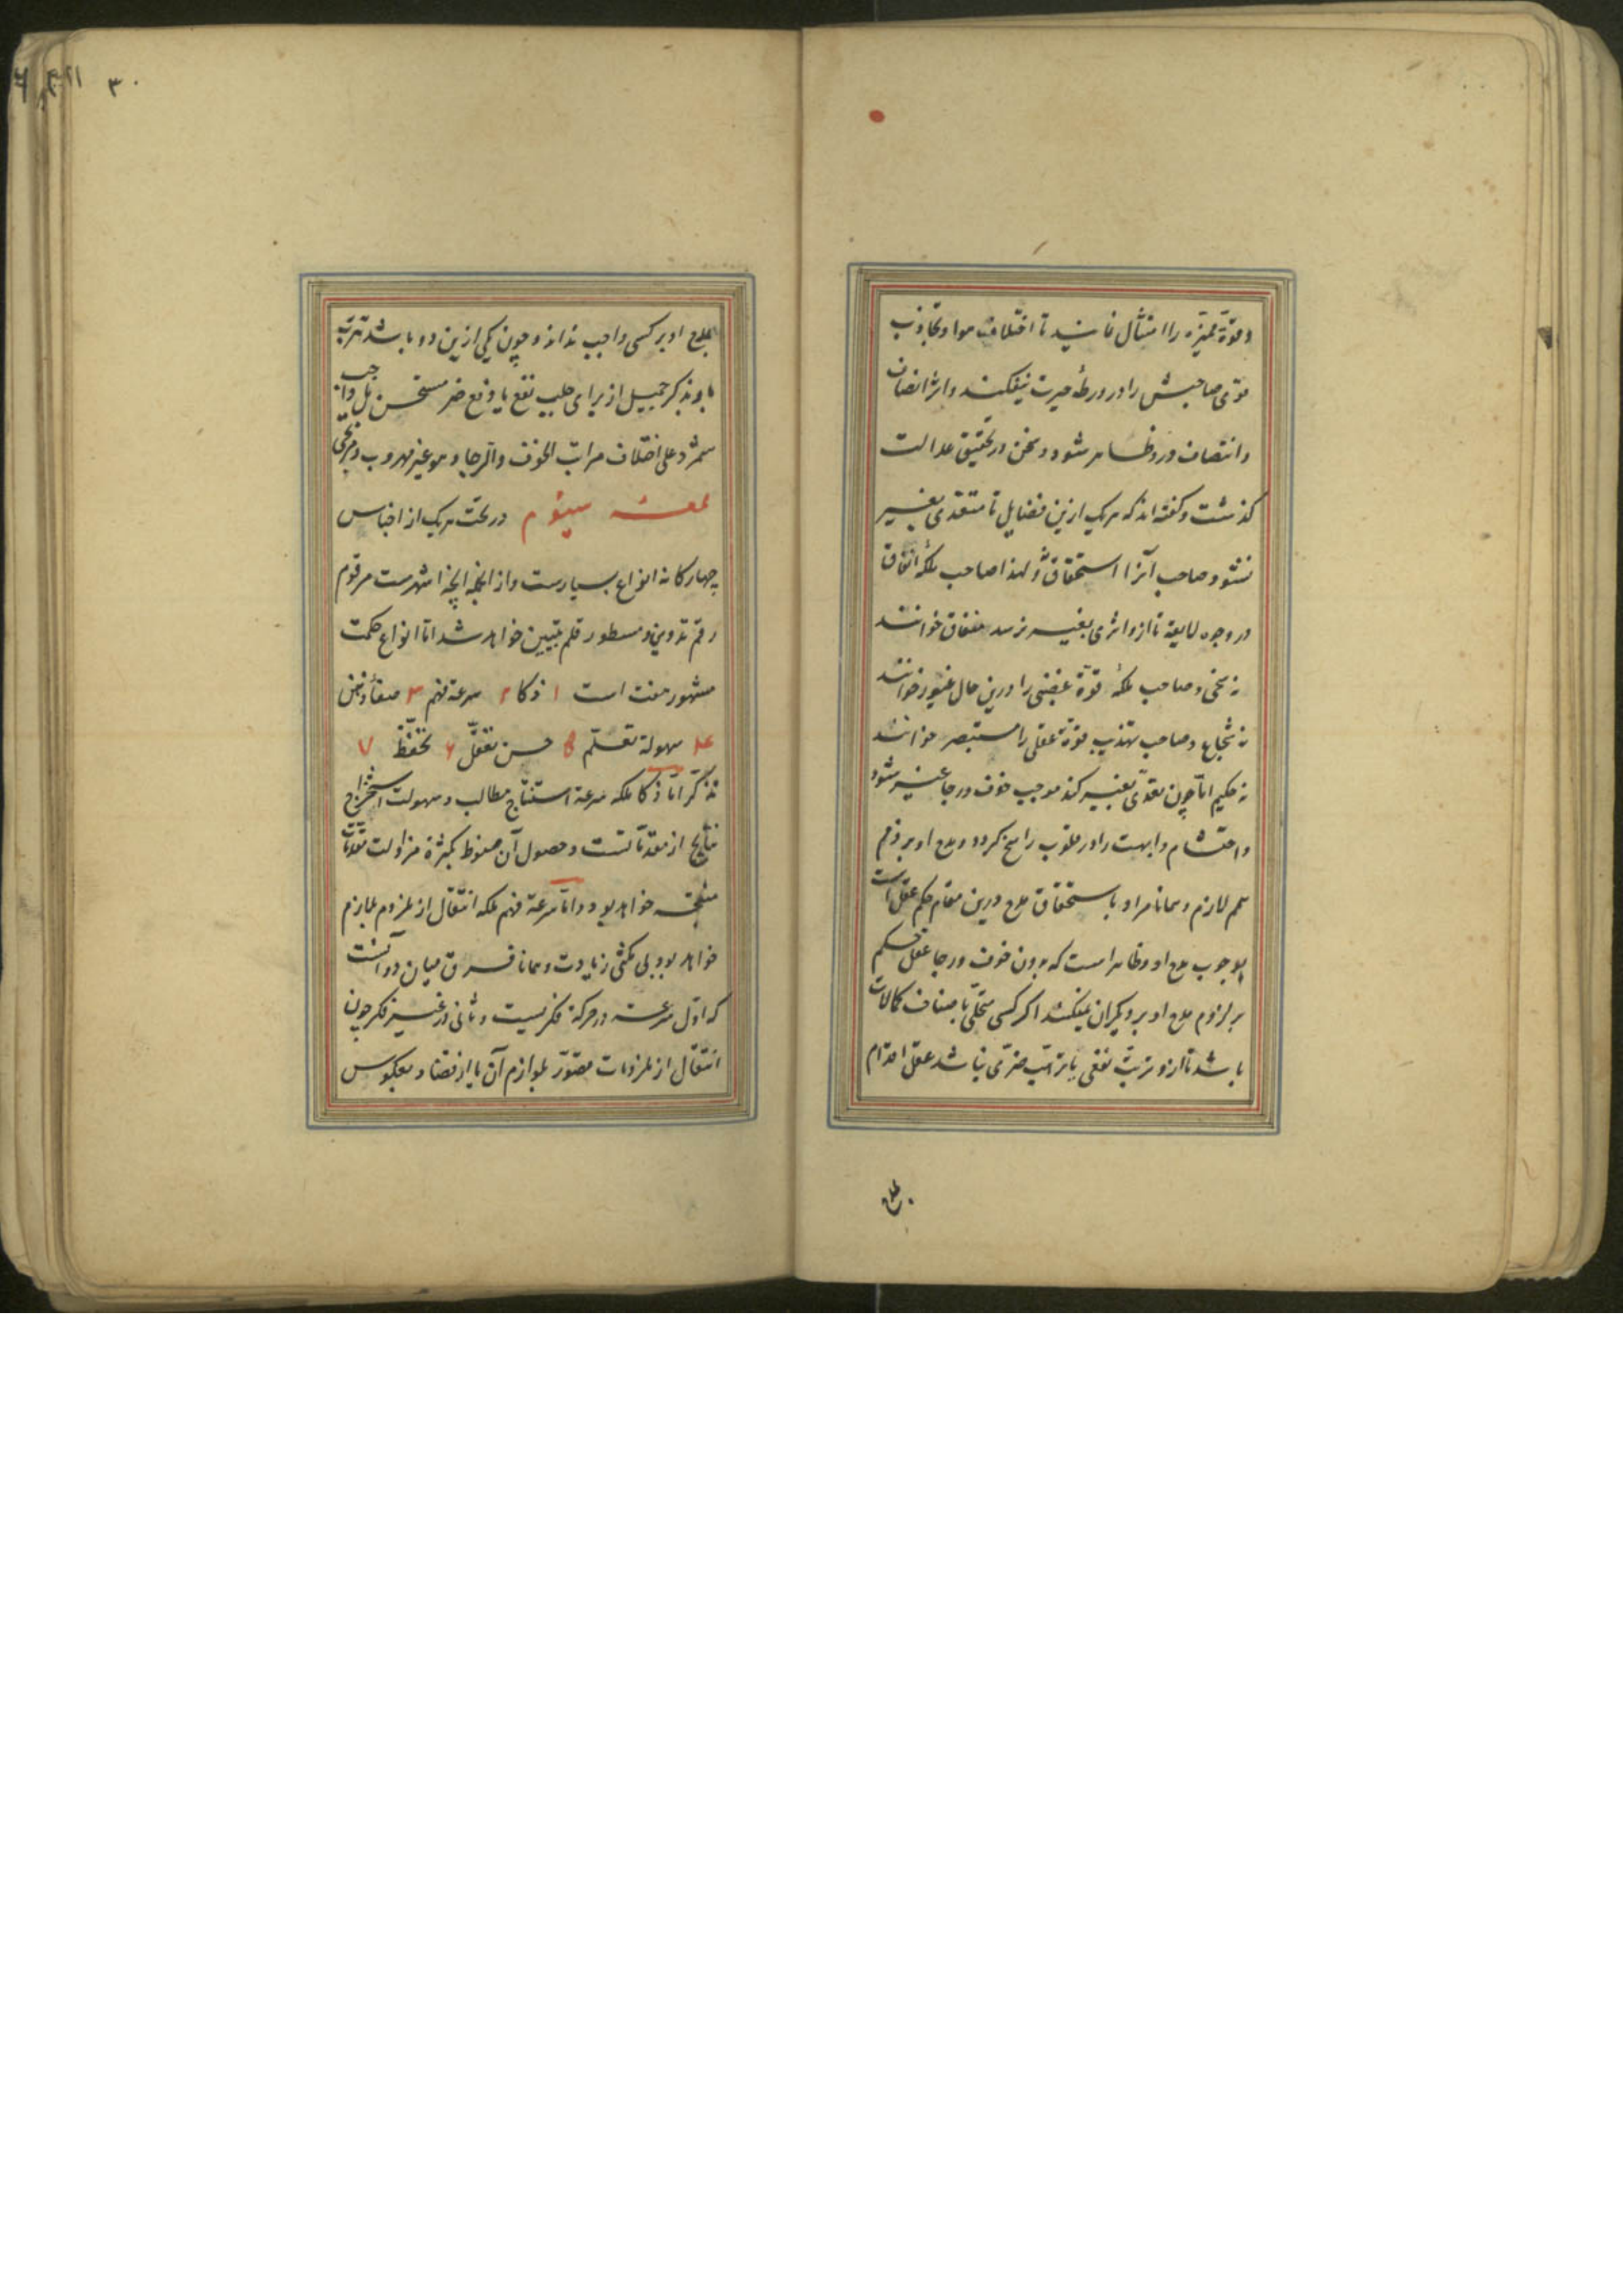 وقوّة ممیّزه را امتثال نمایند تا اختلاف هوا و تجاذب
قوی صاحبش را در ورطهٔ حیرت نیفکند و اثر انصاف
و انتصاف درو ظاهر شود و سخن در تحقیق عدالت
گذشت و گفته‌اند که هریک ازین فضایل تا متعدی بغیر
نشود صاحب آنرا استحقاق و لهذا صاحب ملکهٔ انفاق
در وجوه لایقه تا ازو اثری بغیر نرسد منفاق خوانند
نه سخی و صاحب ملکهٔ قوّة غضبی را درین حال غیور خوانند
نه شجاع و صاحب تهذیب قوّة عقلی را مستبصر خوانند
نه حکیم امّا چون تعدّی بغیر کند موجب خوف و رجا غیر شود
و احتشام و ابهت را در قلوب راسخ کردد و مدح او بر
لازم و همانا مراد باستحقاق مدح درین مقام حکم عقل است
بوجوب مدح او و ظاهر است که بدون خوف و رجا عقل حکم
بر لزوم مدح او بر دیکران نمیکند اکر کسی متحلّی باصناف کمالات
باشد تا ازو ترتّب نفعی یا ترتّب ضرّی نباشد عقل اقدام
۳۰
بمدح او بر کسی واجب نداند و چون یکی ازین دو باشد
بذکر جمیل از برای جلب نفع یا دفع ضر مستحسن بل واجب
شمرد علی اختلاف مراتب الخوف والرجا و هو غیر مهروب و مرجی
لمعهٔ سیّوم در تحت هریک از اجناس
چهارکانه انواع بسیارست و از آنجمله آنچه اشهرست مرقوم
رقم تدوین و مسطور قلم تبیین خواهد شد امّا انواع حکمت
مشهور هفت است ۱ ذکا ۲ سرعة فهم ۳ صفاء ذهن
۴ سهولة تعلّم ۵ حسن تعقّل ۶ تحفّظ ۷
تذکّر امّا ذکا ملکه سرعة استنتاج مطالب و سهولت استخراج
نتایج از مقدّماتست و حصول آن منوط بکثرة مزاولت مقدّمات
منتجه خواهد بود و امّا سرعة فهم ملکه انتقال از ملزوم بلازم
خواهد بود بی مکثی زیادت و همانا فرق میان دو آنست
که اوّل سرعت در حرکة فکریست و ثانی در غیر فکر چون
انتقال از ملزومات مصوّر بلوازم آن یا از قضا و معکوس